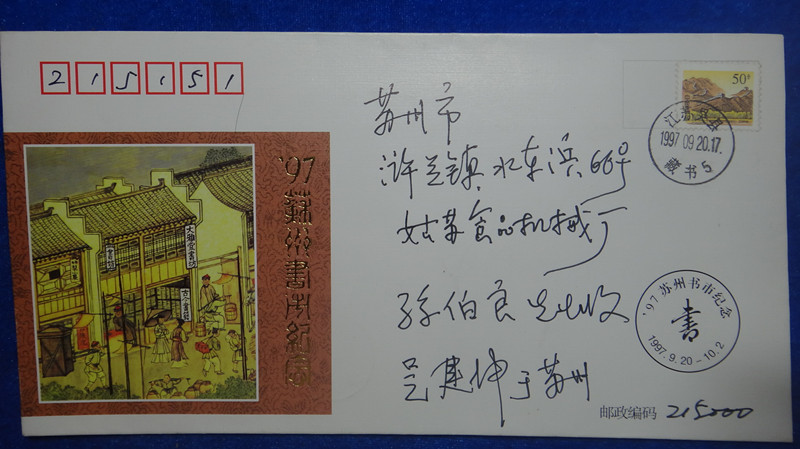 215151
50分
江苏吴县
1997.09.20.17.
藏书5
苏州市
浒关镇水东浜66号
姑苏食品机械厂
孙伯良先生收
吴建坤于苏州
邮政编码 215000
'97苏州书市纪念
書
1997.9.20-10.2
'97蘇州書市紀念
大雅堂書坊
書坊